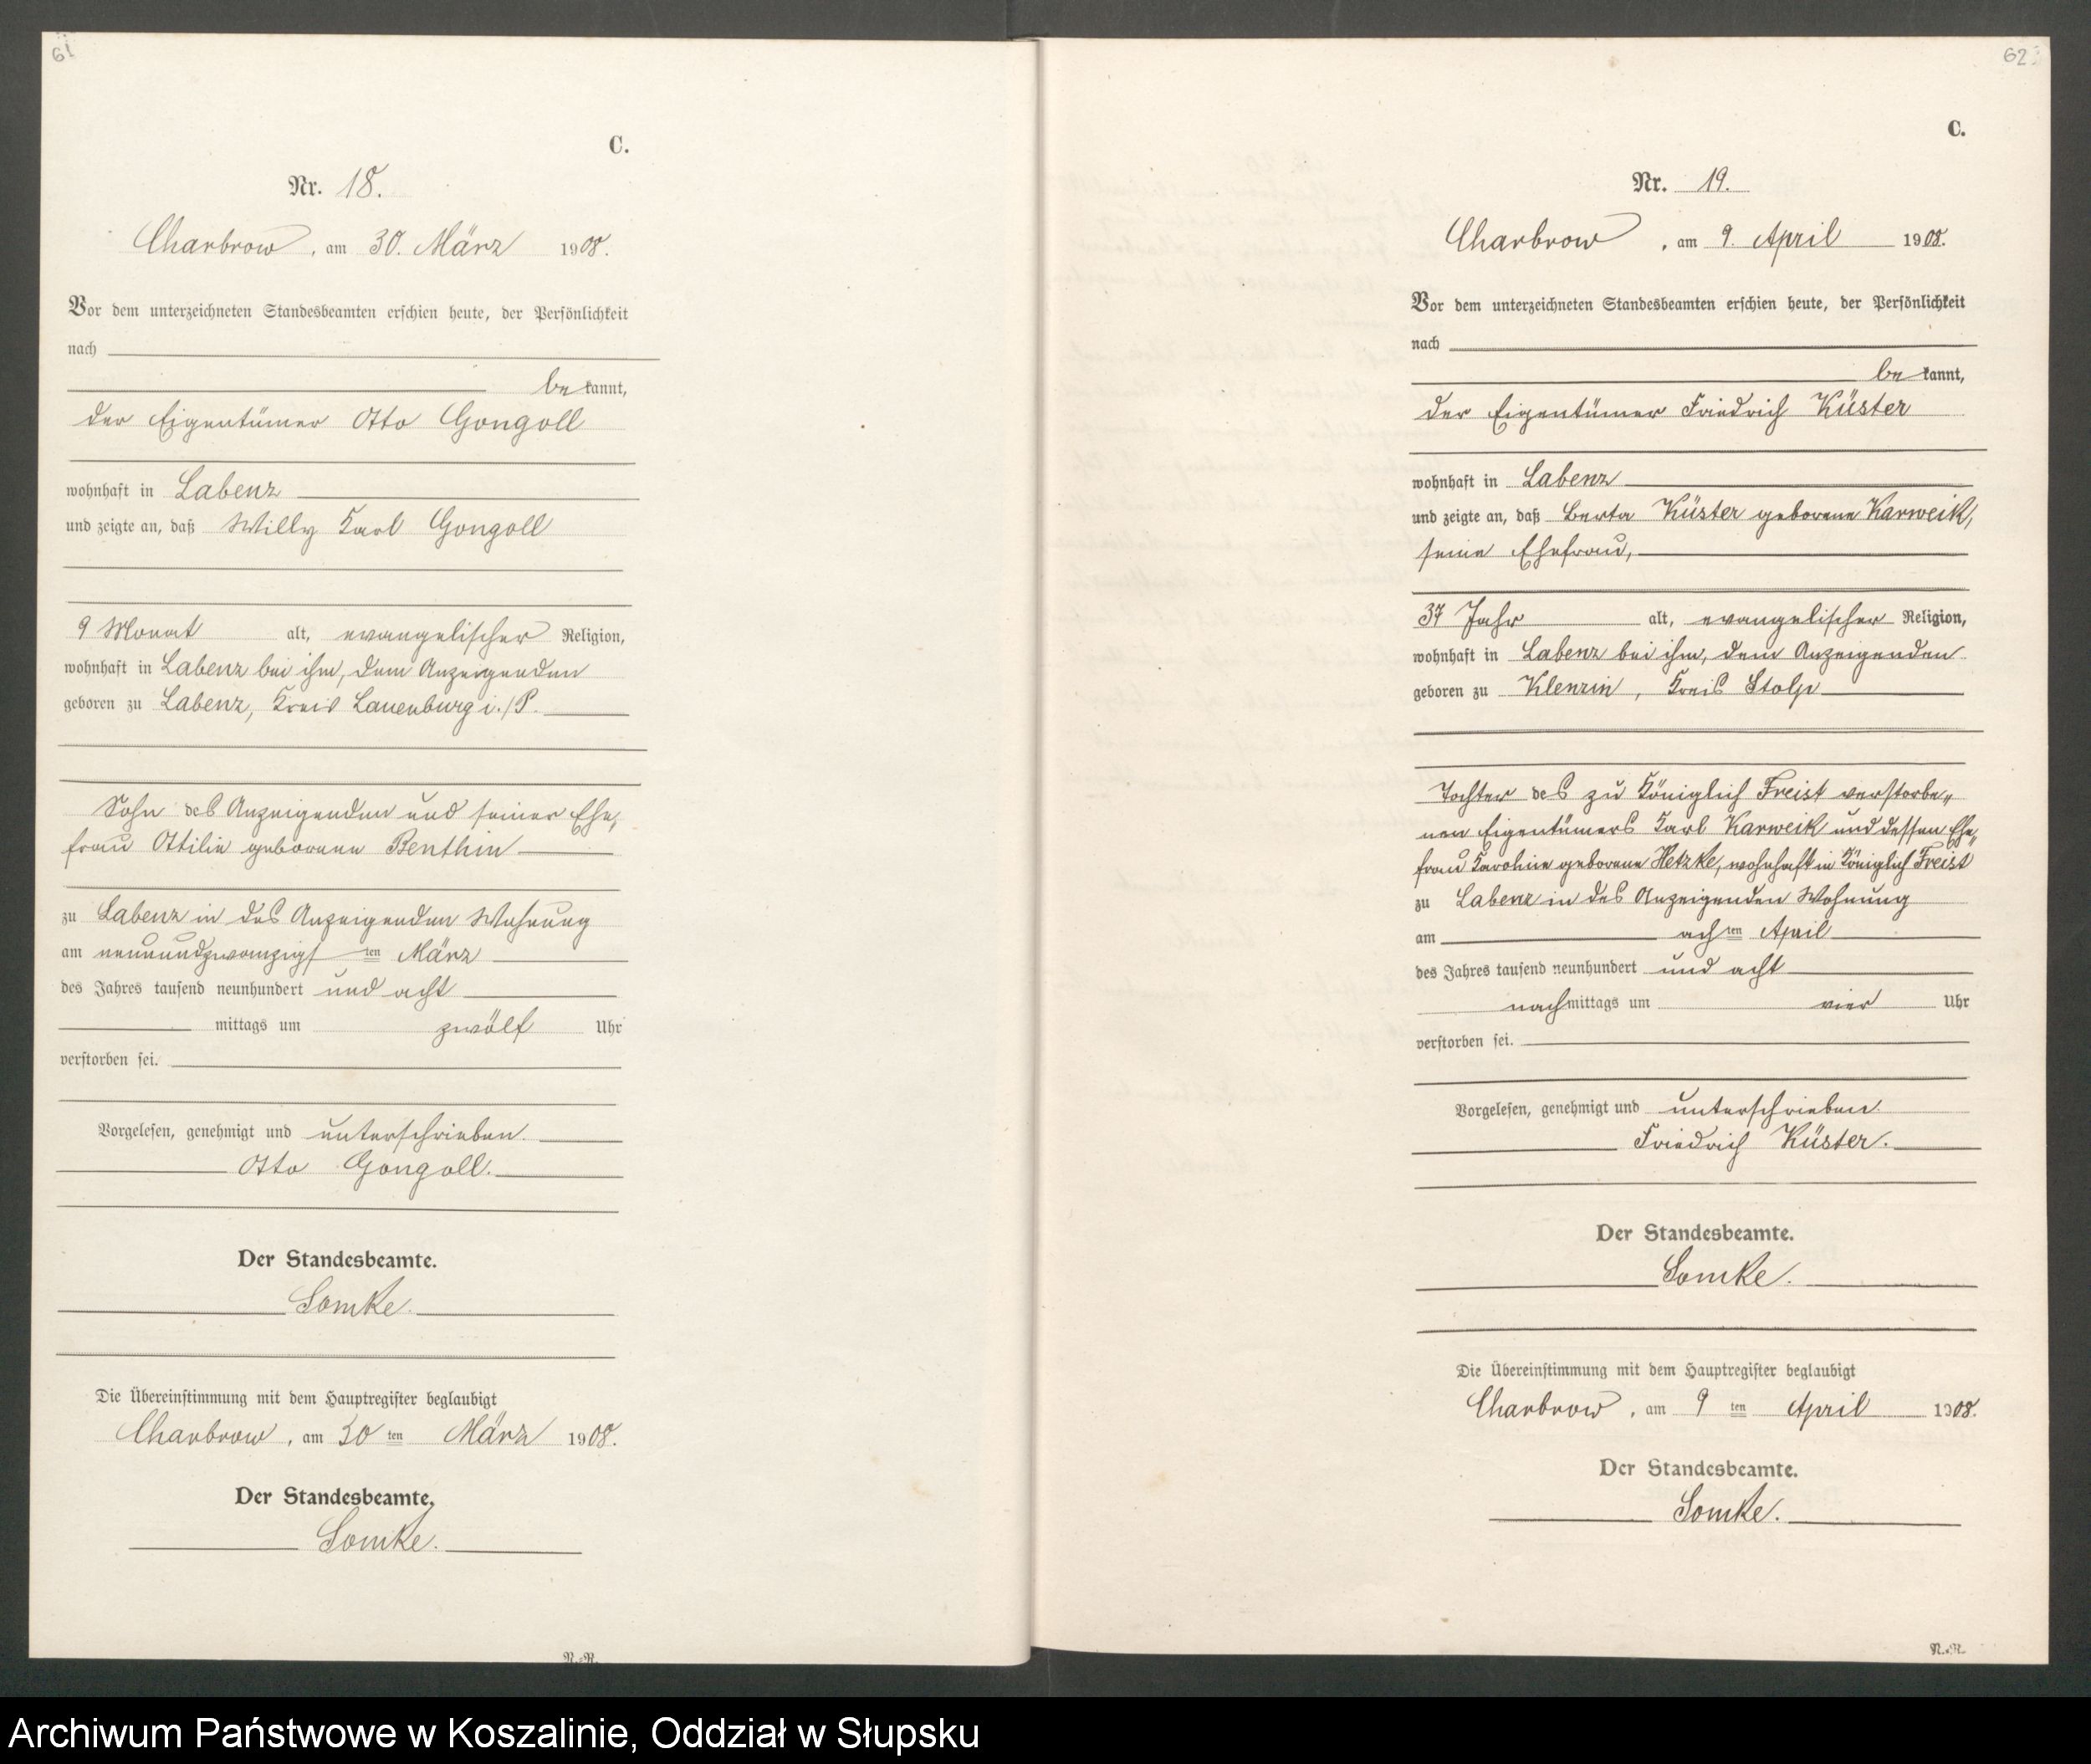 61
C.
Nr. 18.
Charbrow, am 30. März 1908.
Vor dem unterzeichneten Standesbeamten erschien heute, der Persönlichkeit
nach
be kannt,
der Eigentümer Otto Gongoll
wohnhaft in Labenz
und zeigte an, daß Willy Karl Gongoll
9 Monat alt, evangelischer Religion,
wohnhaft in Labenz bei ihm, dem Anzeigenden
geboren zu Labenz, Kreis Lauenburg i./P.
Sohn des Anzeigenden und seiner Ehe,
frau Ottilie geborene Benthin
zu Labenz in des Anzeigenden Wohnung
am neunundzwanzigsten März
des Jahres tausend neunhundert und acht
mittags um zwölf Uhr
verstorben sei.
Vorgelesen, genehmigt und unterschrieben.
Otto Gongoll.
Der Standesbeamte.
Somke.
Die Übereinstimmung mit dem Hauptregister beglaubigt
Charbrow, am 30ten März 1908.
Der Standesbeamte.
Somke.
N.-R.
62
C.
Nr. 19.
Charbrow, am 9. April 1908.
Vor dem unterzeichneten Standesbeamten erschien heute, der Persönlichkeit
nach
be kannt,
der Eigentümer Friedrich Küster
wohnhaft in Labenz
und zeigte an, daß Berta Küster geborene Karweik,
seine Ehefrau,
37 Jahr alt, evangelischer Religion,
wohnhaft in Labenz bei ihm, dem Anzeigenden
geboren zu Klenzin, Kreis Stolp
Tochter des zu Königlich Freist verstorbe„
nen Eigentümers Karl Karweik und dessen Ehe„
frau Karoline geborene Hetzke, wohnhaft in Königlich Freist
zu Labenz in des Anzeigenden Wohnung
am achten April
des Jahres tausend neunhundert und acht
nachmittags um vier Uhr
verstorben sei.
Vorgelesen, genehmigt und unterschrieben.
Friedrich Küster.
Der Standesbeamte.
Somke.
Die Übereinstimmung mit dem Hauptregister beglaubigt
Charbrow, am 9ten April 1908.
Der Standesbeamte.
Somke.
N.-R.
Archiwum Państwowe w Koszalinie, Oddział w Słupsku